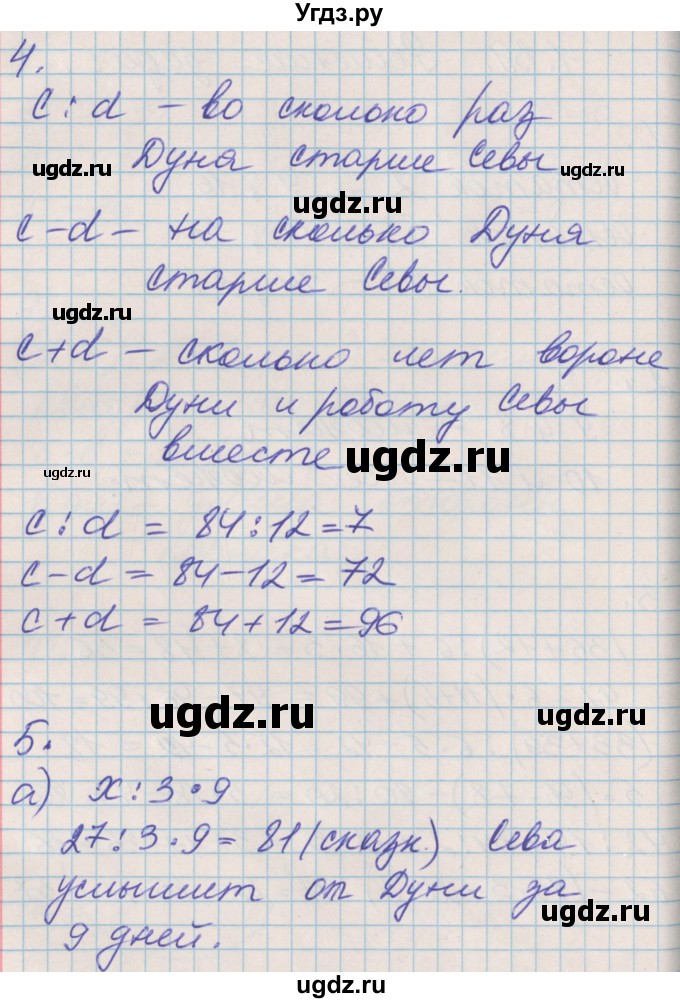 Угдз.ру
4.
c : d – во сколько раз
Дуня старше Севы
ugdz.ru ugdz.ru
ugdz.ru
c – d – на сколько Дуня
старше Севы.
ugdz.ru
c + d – сколько лет вороне
Дуни и роботу Севы
вместе ugdz.ru
ugdz.ru
c : d = 84 : 12 = 7
c – d = 84 – 12 = 72
c + d = 84 + 12 = 96
ugdz.ru
ugdz.ru
5.
а) x : 3 · 9
27 : 3 · 9 = 81 (сказк.) Сева
услышит от Дуни за
ugdz.ru
9 дней.
ugdz.ru